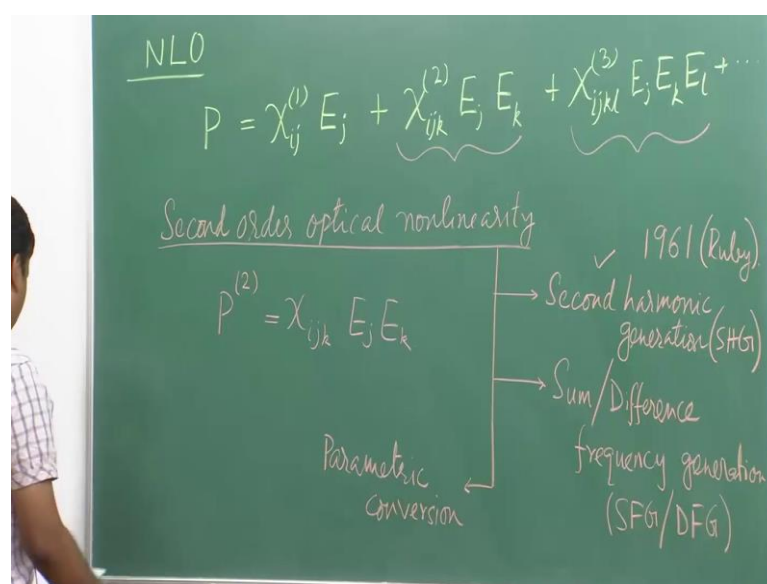 NLO
P = χ_ij^(1) E_j + χ_ijk^(2) E_j E_k + χ_ijkl^(3) E_j E_k E_l + ...
Second order optical nonlinearity
P^(2) = χ_ijk E_j E_k
1961 (Ruby)
✓ Second harmonic
generation (SHG)
Sum/Difference
frequency generation
(SFG/DFG)
Parametric
conversion